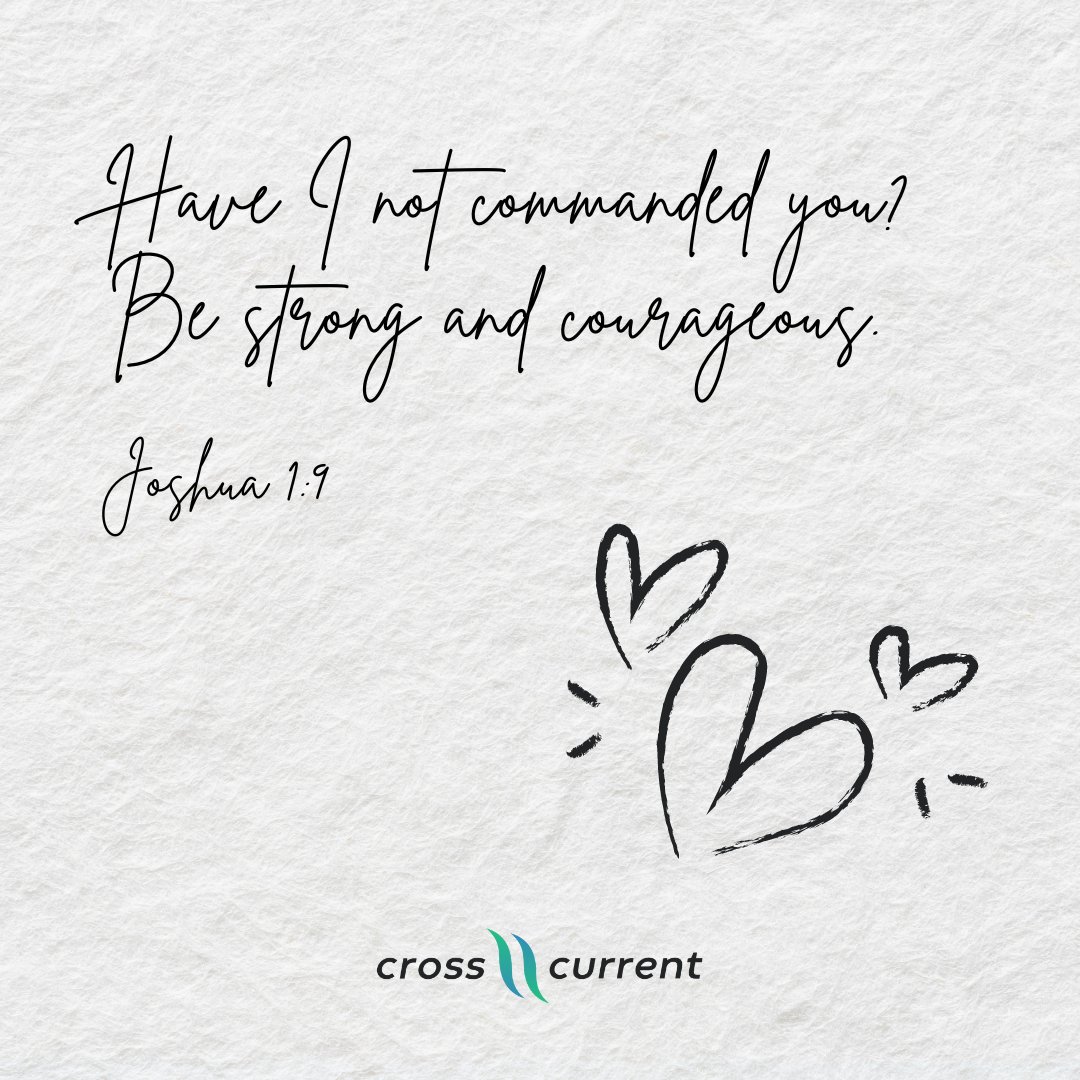 Have I not commanded you?
Be strong and courageous.
Joshua 1:9
cross current